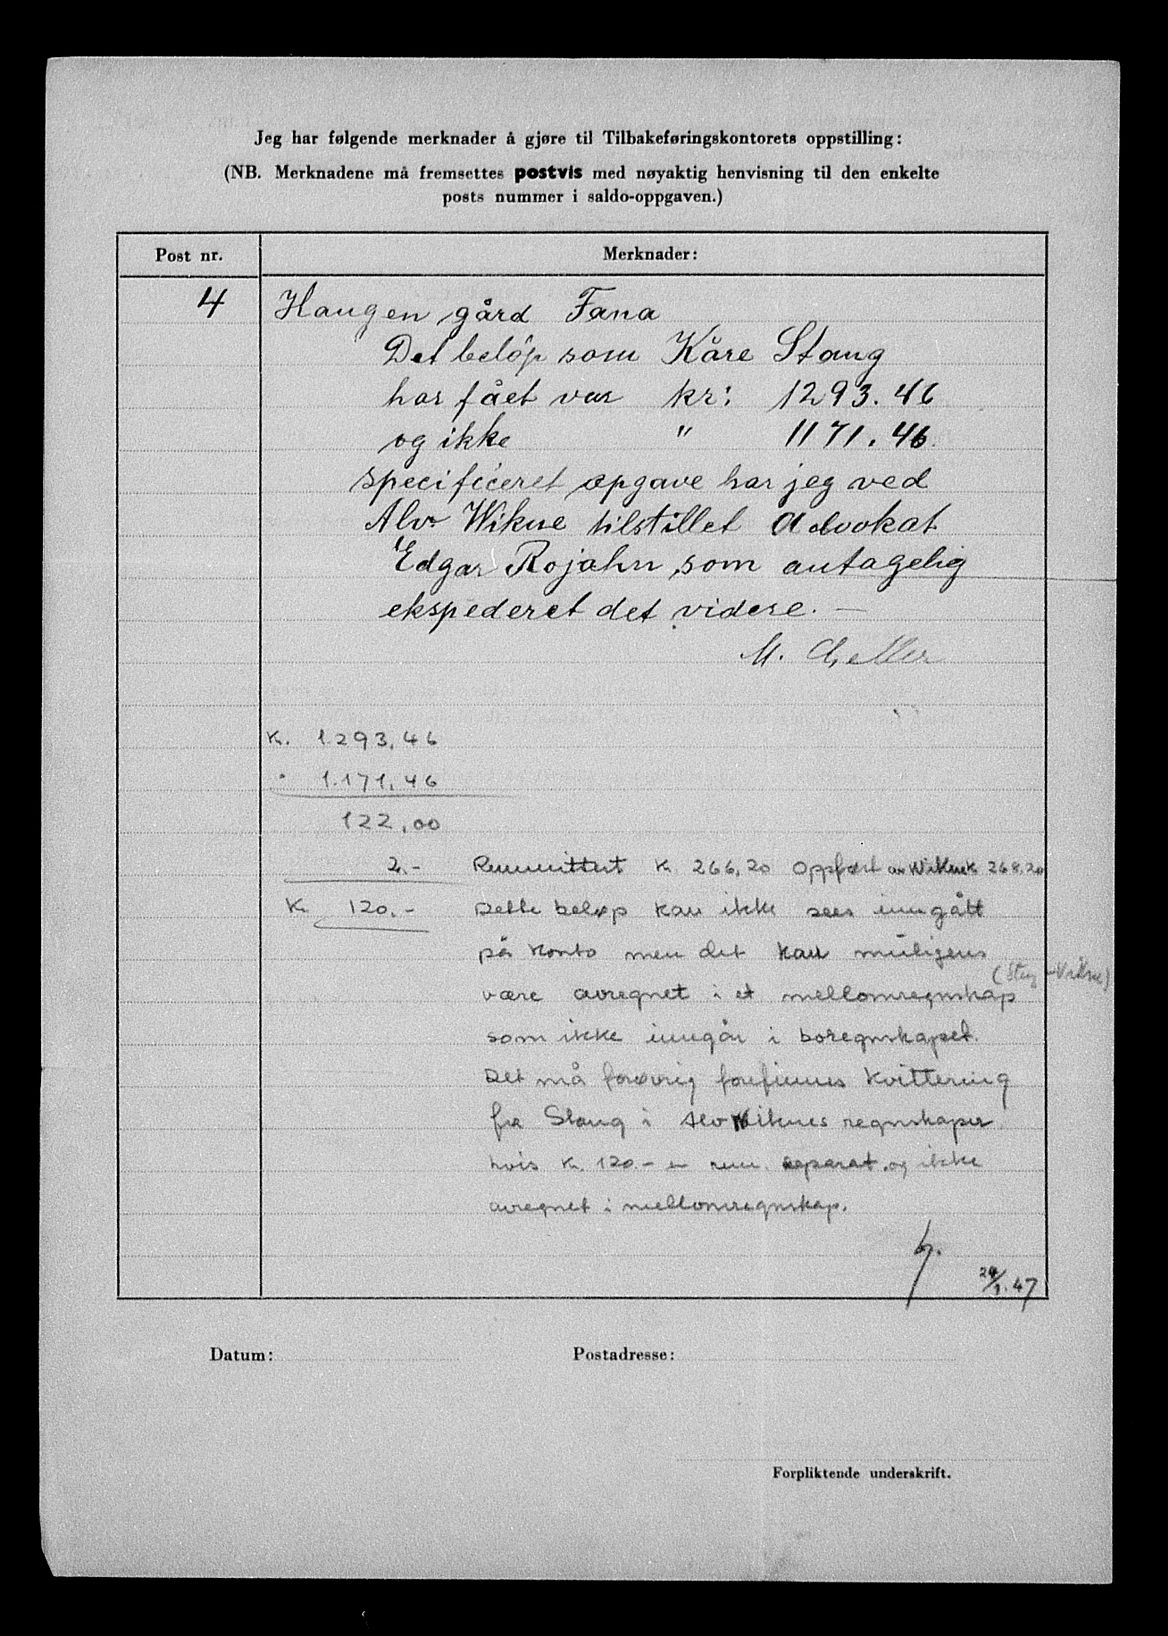 Jeg har følgende merknader å gjøre til Tilbakeføringskontorets oppstilling:
(NB. Merknadene må fremsettes postvis med nøyaktig henvisning til den enkelte
posts nummer i saldo-oppgaven.)
Post nr. Merknader:
4 Haugen gård Fana
Det beløp som Kåre Stang
har fået var kr: 1293.46
og ikke " 1171.46.
specificeret opgave har jeg ved
Alv Wikne tilstillet Advokat
Edgar Rojahn som antagelig
ekspederet det videre. —
M.
K. 1.293,46
1.171,46
122,00
2.- Remmittert K. 266,20 Oppført av Wikne K 268.20
K. 120.- Dette beløp kan ikke sees inngått
på konto men det kan muligens
(Stang - Vikne)
være avregnet i et mellomregnskap
som ikke inngår i boregnskapet.
Det må forøvrig forefinnes kvittering
fra Stang i Alv Wiknes regnskaper
hvis K. 120.- er rem. separat og ikke
avregnet i mellomregnskap.
24/1.47
Datum: Postadresse:
Forpliktende underskrift.